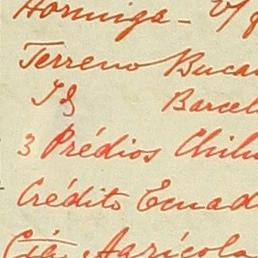 Hormiga - v/
Terreno Buca
Id Barcel
3 Prédios Chilu
Crédito Ecuad
Cía. Agrícola